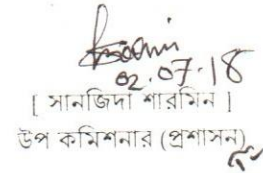 02.07.18
[ সানজিদা শারমিন ]
উপ কমিশনার (প্রশাসন)